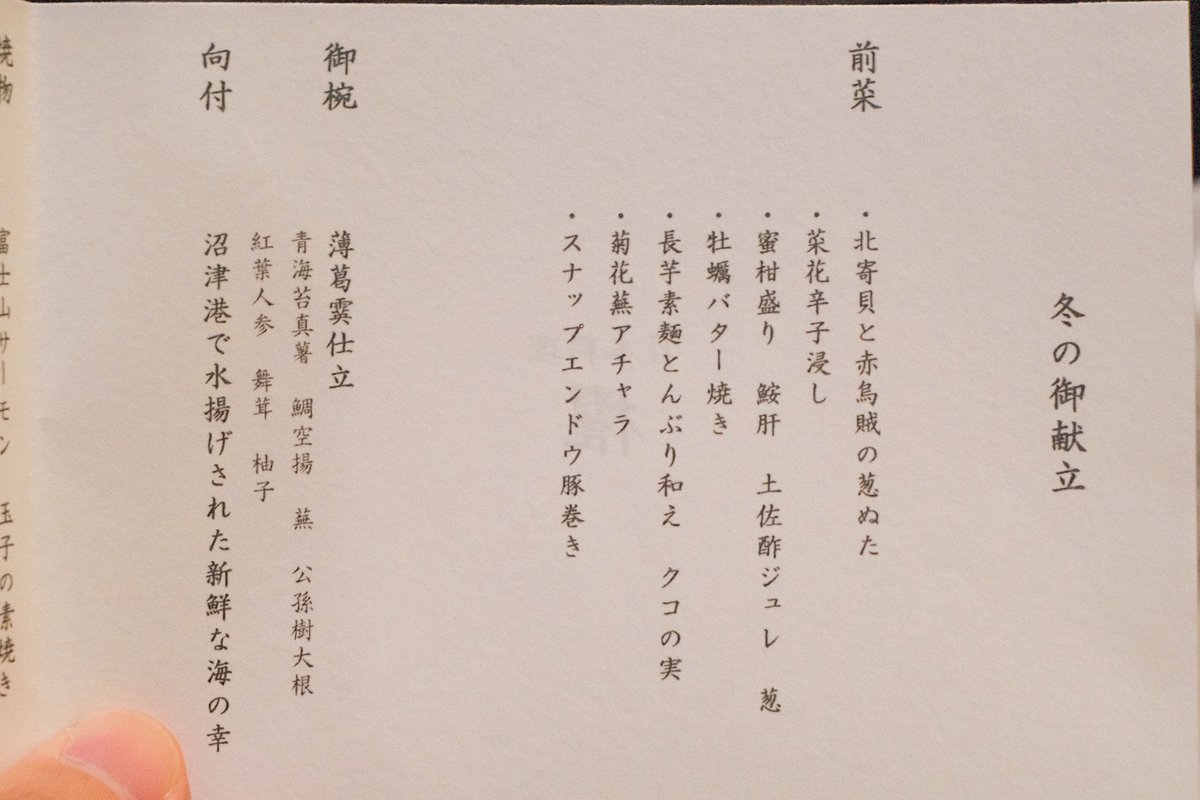 冬の御献立
前菜
・北寄貝と赤烏賊の葱ぬた
・菜花辛子浸し
・蜜柑盛り　鮟肝　土佐酢ジュレ　葱
・牡蠣バター焼き
・長芋素麺とんぶり和え　クコの実
・菊花蕪アチャラ
・スナップエンドウ豚巻き
御椀
薄葛霙仕立
青海苔真薯　鯛空揚　蕪　公孫樹大根
紅葉人参　舞茸　柚子
向付
沼津港で水揚げされた新鮮な海の幸
焼物
富士山サーモン　玉子の素焼き